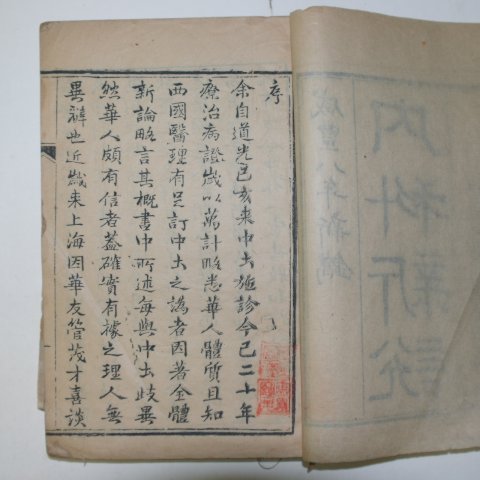 序
余自道光己亥來中土施診今已二十年
療治病證歲以萬計略悉華人體質且知
西國醫理有足訂中土之譌者因著全體
新論略言其概書中所述每與中土歧異
然華人頗有信者蓋確實有據之理人無
異辭也近歲來上海因華友管茂才喜談
內科新說
咸豐八年新鐫